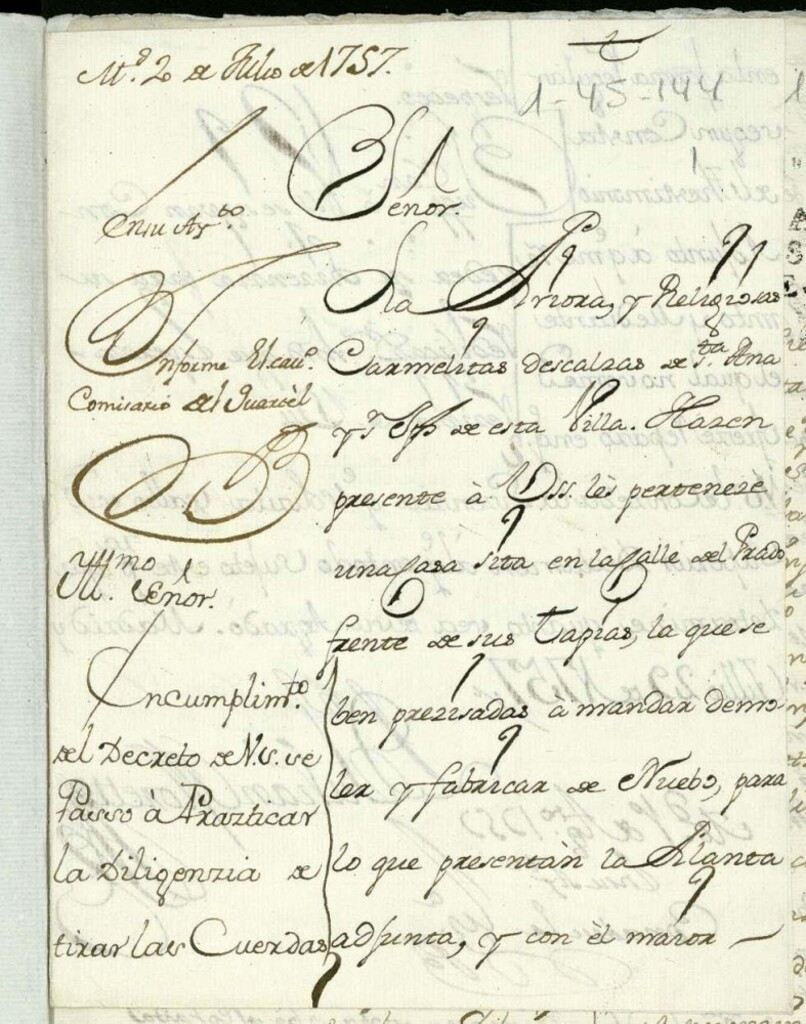 M.ᵈ 2 de Julio de 1757.
1-45-144
Señor.
En su Ay.ᵗᵒ
Informe El cau.ᵒ
Comisario del Quartèl
Yllmo
Señor.
En cumplim.ᵗᵒ
del Decreto de V.S. se
Passo à Prazticar
la Diligenzia de
tirar las Cuerdas
La Priora, y Religiosas
Carmelitas descalzas de S.ᵗᵃ Ana
y S.ⁿ Jph de esta Villa. Hazen
presente à Vss. lès perteneze
una Casa sita en la Calle del Prado
frente de sus Tapias, la que se
ben prezisadas à mandar demo
ler y fabricar de Nuebo, para
lo que presentàn la Planta
adjunta, y con èl maior